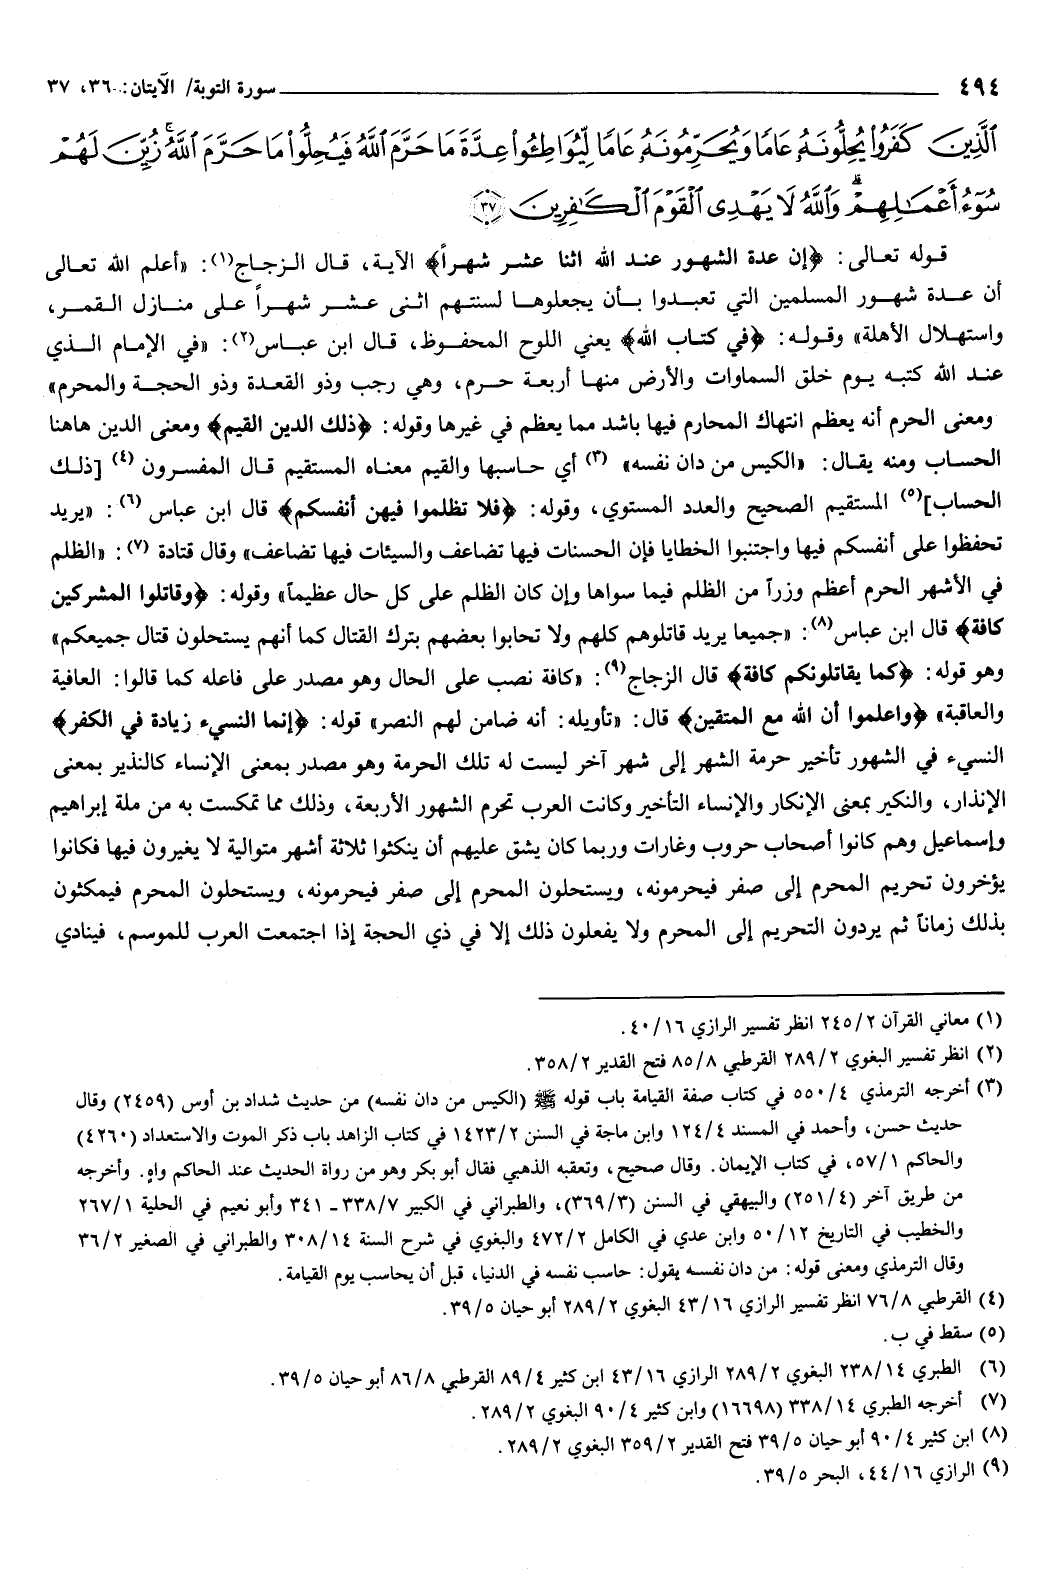 ٤٩٤ سورة التوبة/ الآيتان: ٣٦، ٣٧
ٱلَّذِينَ كَفَرُواْ يُحِلُّونَهُۥ عَامًا وَيُحَرِّمُونَهُۥ عَامًا لِّيُوَاطِئُواْ عِدَّةَ مَا حَرَّمَ ٱللَّهُ فَيُحِلُّواْ مَا حَرَّمَ ٱللَّهُۚ زُيِّنَ لَهُمْ
سُوٓءُ أَعْمَٰلِهِمْۗ وَٱللَّهُ لَا يَهْدِى ٱلْقَوْمَ ٱلْكَٰفِرِينَ ٣٧
قوله تعالى: ﴿إن عدة الشهور عند الله اثنا عشر شهراً﴾ الآية، قال الزجاج(١): «أعلم الله تعالى
أن عدة شهور المسلمين التي تعبدوا بأن يجعلوها لسنتهم اثنى عشر شهراً على منازل القمر،
واستهلال الأهلة» وقوله: ﴿في كتاب الله﴾ يعني اللوح المحفوظ، قال ابن عباس(٢): «في الإمام الذي
عند الله كتبه يوم خلق السماوات والأرض منها أربعة حرم، وهي رجب وذو القعدة وذو الحجة والمحرم»
ومعنى الحرم أنه يعظم انتهاك المحارم فيها باشد مما يعظم في غيرها وقوله: ﴿ذلك الدين القيم﴾ ومعنى الدين هاهنا
الحساب ومنه يقال: «الكيس من دان نفسه» (٣) أي حاسبها والقيم معناه المستقيم قال المفسرون (٤) [ذلك
الحساب](٥) المستقيم الصحيح والعدد المستوي، وقوله: ﴿فلا تظلموا فيهن أنفسكم﴾ قال ابن عباس (٦): «يريد
تحفظوا على أنفسكم فيها واجتنبوا الخطايا فإن الحسنات فيها تضاعف والسيئات فيها تضاعف» وقال قتادة (٧): «الظلم
في الأشهر الحرم أعظم وزراً من الظلم فيما سواها وإن كان الظلم على كل حال عظيماً» وقوله: ﴿وقاتلوا المشركين
كافة﴾ قال ابن عباس(٨): «جميعا يريد قاتلوهم كلهم ولا تحابوا بعضهم بترك القتال كما أنهم يستحلون قتال جميعكم»
وهو قوله: ﴿كما يقاتلونكم كافة﴾ قال الزجاج(٩): «كافة نصب على الحال وهو مصدر على فاعله كما قالوا: العافية
والعاقبة» ﴿واعلموا أن الله مع المتقين﴾ قال: «تأويله: أنه ضامن لهم النصر» قوله: ﴿إنما النسيء زيادة في الكفر﴾
النسيء في الشهور تأخير حرمة الشهر إلى شهر آخر ليست له تلك الحرمة وهو مصدر بمعنى الإنساء كالنذير بمعنى
الإنذار، والنكير بمعنى الإنكار والإنساء التأخير وكانت العرب تحرم الشهور الأربعة، وذلك مما تمكست به من ملة إبراهيم
وإسماعيل وهم كانوا أصحاب حروب وغارات وربما كان يشق عليهم أن ينكثوا ثلاثة أشهر متوالية لا يغيرون فيها فكانوا
يؤخرون تحريم المحرم إلى صفر فيحرمونه، ويستحلون المحرم إلى صفر فيحرمونه، ويستحلون المحرم فيمكثون
بذلك زماناً ثم يردون التحريم إلى المحرم ولا يفعلون ذلك إلا في ذي الحجة إذا اجتمعت العرب للموسم، فينادي
(١) معاني القرآن ٢٤٥/٢ انظر تفسير الرازي ٤٠/١٦.
(٢) انظر تفسير البغوي ٢٨٩/٢ القرطبي ٨٥/٨ فتح القدير ٣٥٨/٢.
(٣) أخرجه الترمذي ٥٥٠/٤ في كتاب صفة القيامة باب قوله ﷺ (الكيس من دان نفسه) من حديث شداد بن أوس (٢٤٥٩) وقال
حديث حسن، وأحمد في المسند ١٢٤/٤ وابن ماجة في السنن ١٤٢٣/٢ في كتاب الزاهد باب ذكر الموت والاستعداد (٤٢٦٠)
والحاكم ٥٧/١، في كتاب الإيمان. وقال صحيح، وتعقبه الذهبي فقال أبو بكر وهو من رواة الحديث عند الحاكم واهٍ. وأخرجه
من طريق آخر (٢٥١/٤) والبيهقي في السنن (٣٦٩/٣)، والطبراني في الكبير ٣٣٨/٧ـ ٣٤١ وأبو نعيم في الحلية ٢٦٧/١
والخطيب في التاريخ ٥٠/١٢ وابن عدي في الكامل ٤٧٢/٢ والبغوي في شرح السنة ٣٠٨/١٤ والطبراني في الصغير ٣٦/٢
وقال الترمذي ومعنى قوله: من دان نفسه يقول: حاسب نفسه في الدنيا، قبل أن يحاسب يوم القيامة.
(٤) القرطبي ٧٦/٨ انظر تفسير الرازي ٤٣/١٦ البغوي ٢٨٩/٢ أبو حيان ٣٩/٥.
(٥) سقط في ب.
(٦) الطبري ٢٣٨/١٤ البغوي ٢٨٩/٢ الرازي ٤٣/١٦ ابن كثير ٨٩/٤ القرطبي ٨٦/٨ أبو حيان ٣٩/٥.
(٧) أخرجه الطبري ٣٣٨/١٤ (١٦٦٩٨) وابن كثير ٩٠/٤ البغوي ٢٨٩/٢.
(٨) ابن كثير ٩٠/٤ أبو حيان ٣٩/٥ فتح القدير ٣٥٩/٢ البغوي ٢٨٩/٢.
(٩) الرازي ٤٤/١٦، البحر ٣٩/٥.